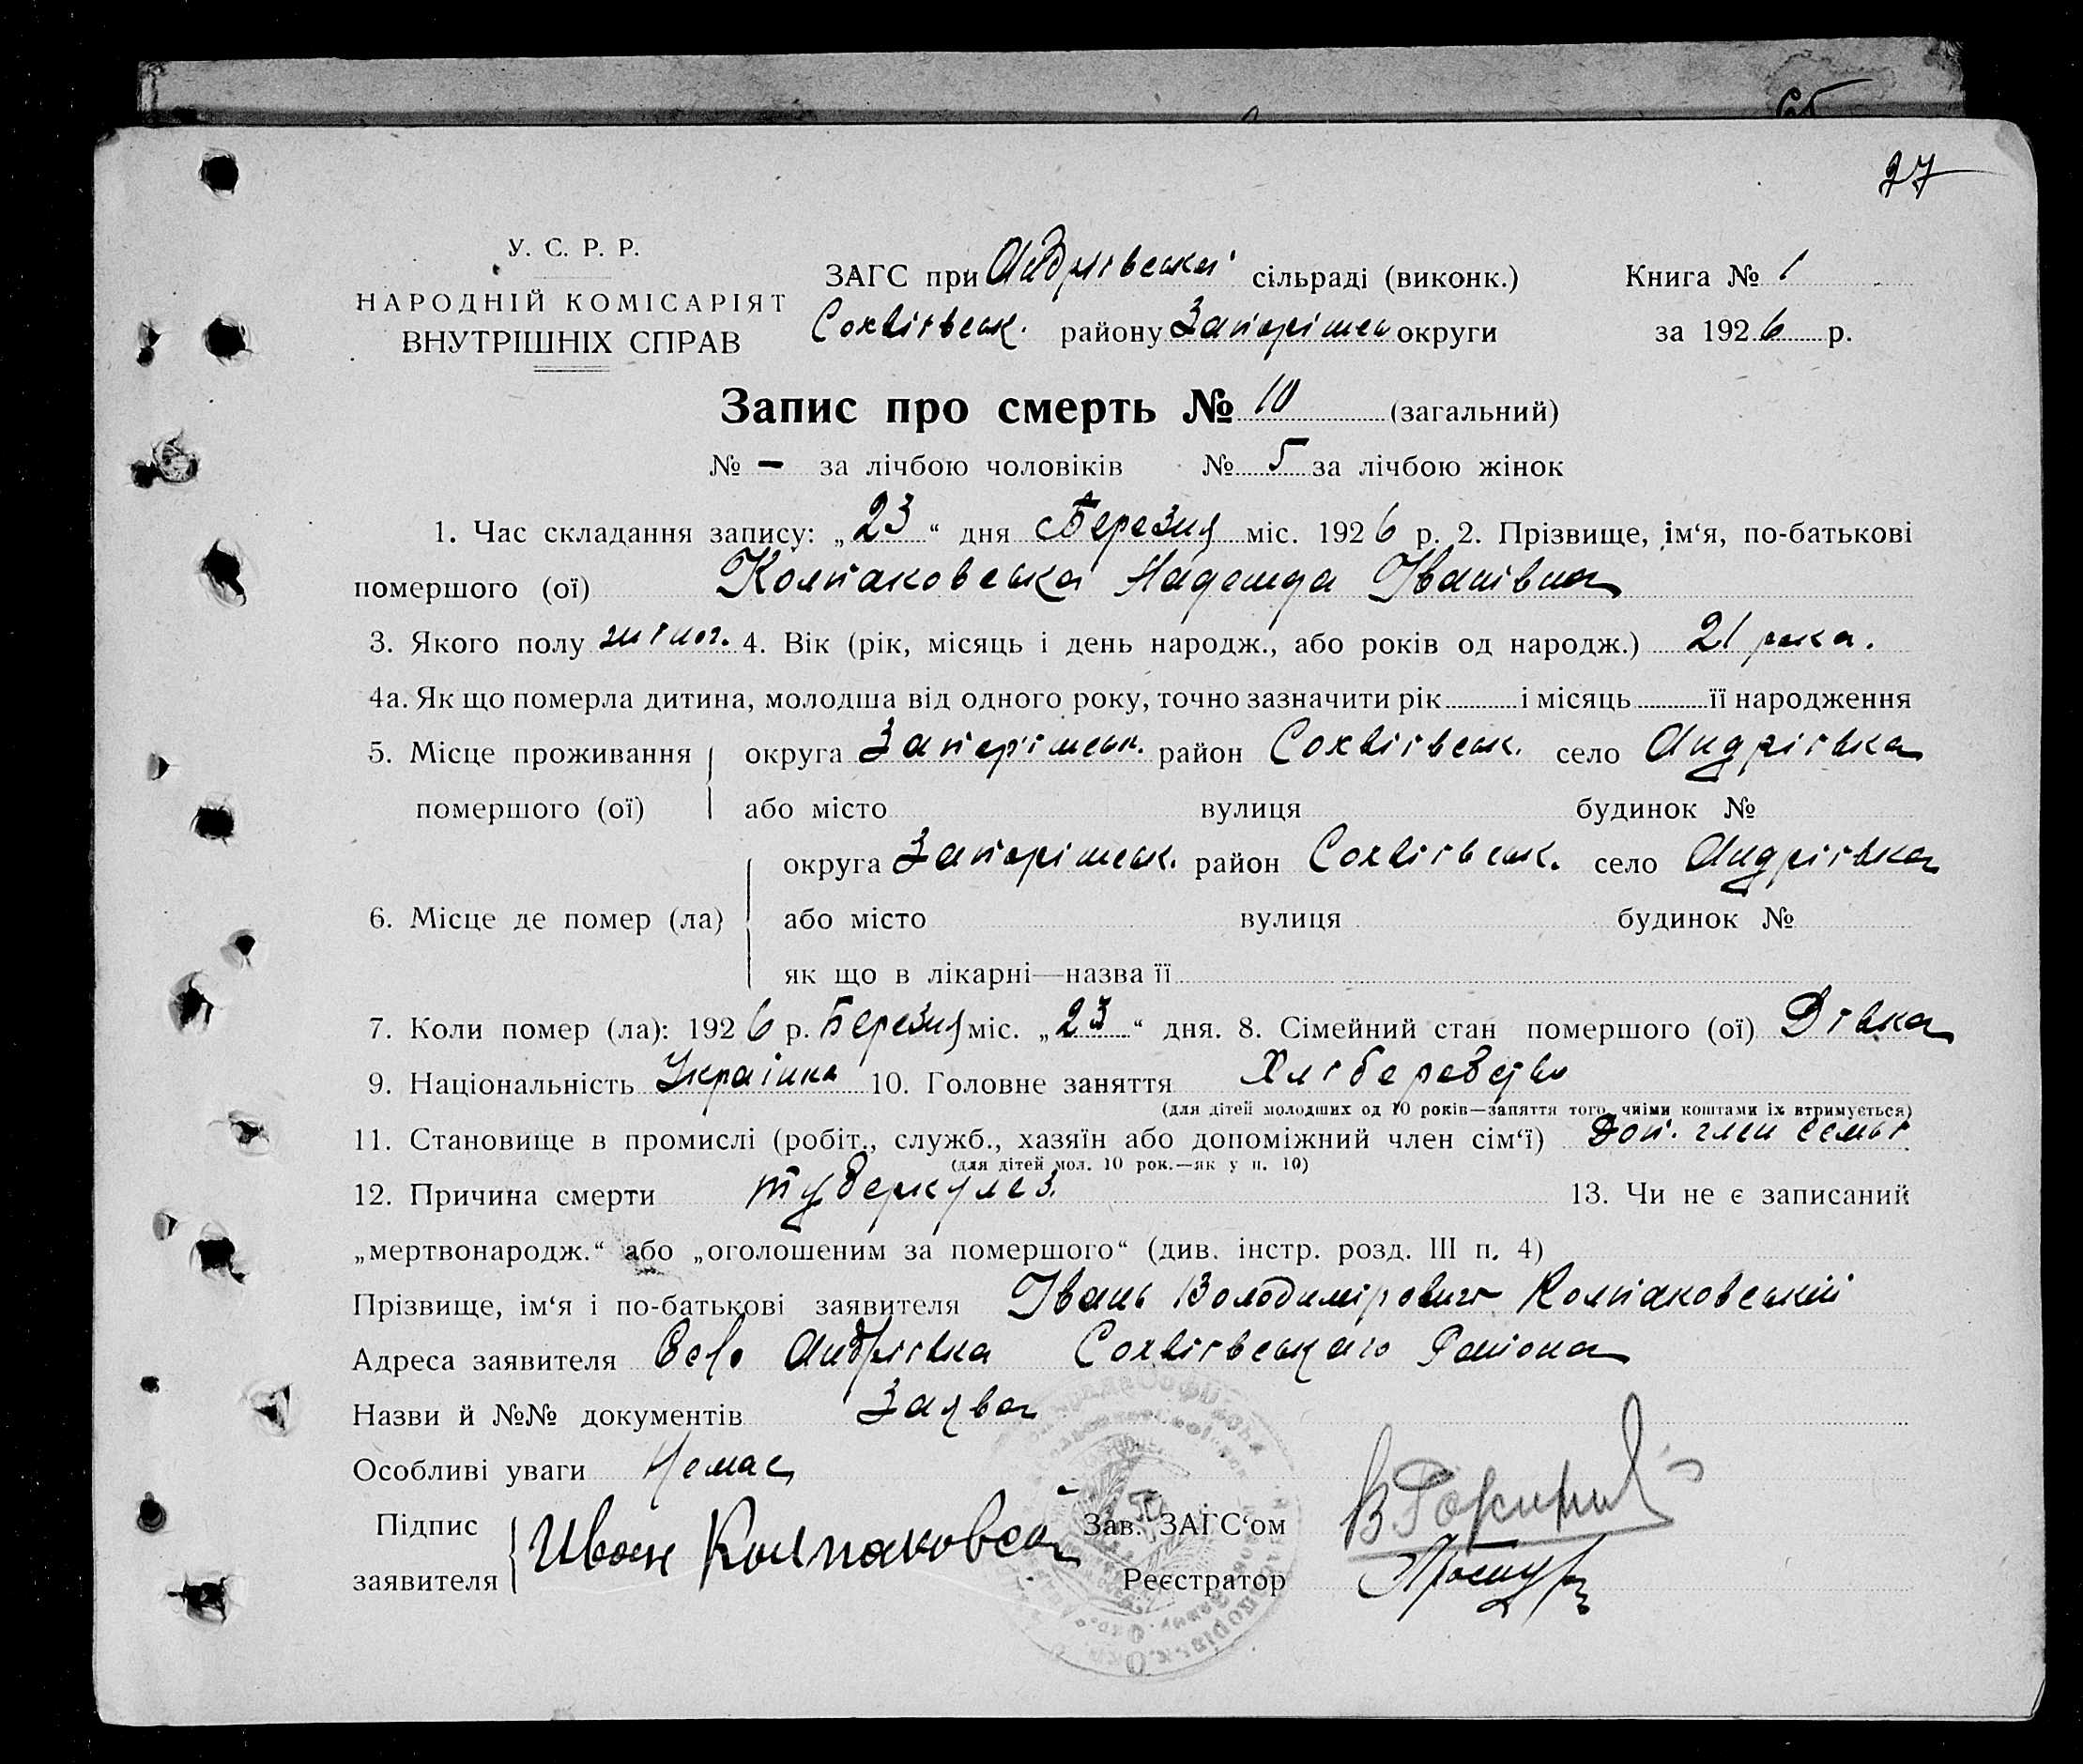 27
У. С. Р. Р.
НАРОДНІЙ КОМІСАРІЯТ
ВНУТРІШНІХ СПРАВ
ЗАГС при Андрівській сільраді (виконк.) Книга № 1
Софіівськ. району Запоріжськ округи за 1926 р.
Запис про смерть № 10 (загальний)
№ - за лічбою чоловіків № 5 за лічбою жінок
1. Час складання запису: „23“ дня Березня міс. 1926 р. 2. Прізвище, ім‘я, по-батькові
помершого (ої) Колпаковська Надежда Іванівна
3. Якого полу жіноч. 4. Вік (рік, місяць і день народж., або років од народж.) 21 рока.
4а. Як що померла дитина, молодша від одного року, точно зазначити рік і місяць її народження
5. Місце проживання округа Запоріжськ. район Софіівськ. село Андрівка
помершого (ої) або місто вулиця будинок №
округа Запоріжськ. район Софіівськ. село Андрівка
6. Місце де помер (ла) або місто вулиця будинок №
як що в лікарні—назва її
7. Коли помер (ла): 1926 р. Березня міс. „23“ дня. 8. Сімейний стан помершого (ої) Дівка
9. Національність Украінка 10. Головне заняття Хліборобство
(для дітей молодших од 10 років—заняття того, чиїми коштами їх втримується)
11. Становище в промислі (робіт., служб., хазяїн або допоміжний член сім‘ї) Доп. член семьі
(для дітей мол. 10 рок.—як у п. 10)
12. Причина смерти туберкулез. 13. Чи не є записаний
„мертвонародж.“ або „оголошеним за помершого“ (див. інстр. розд. III п. 4)
Прізвище, ім‘я і по-батькові заявителя Івань Володимірович Колпаковський
Адреса заявителя Село Андрівка Софіівського Раиіона
Назви й №№ документів Заява
Особливі уваги Немає
Підпис Зав. ЗАГС‘ом
заявителя Иван Колпаковский Реєстратор